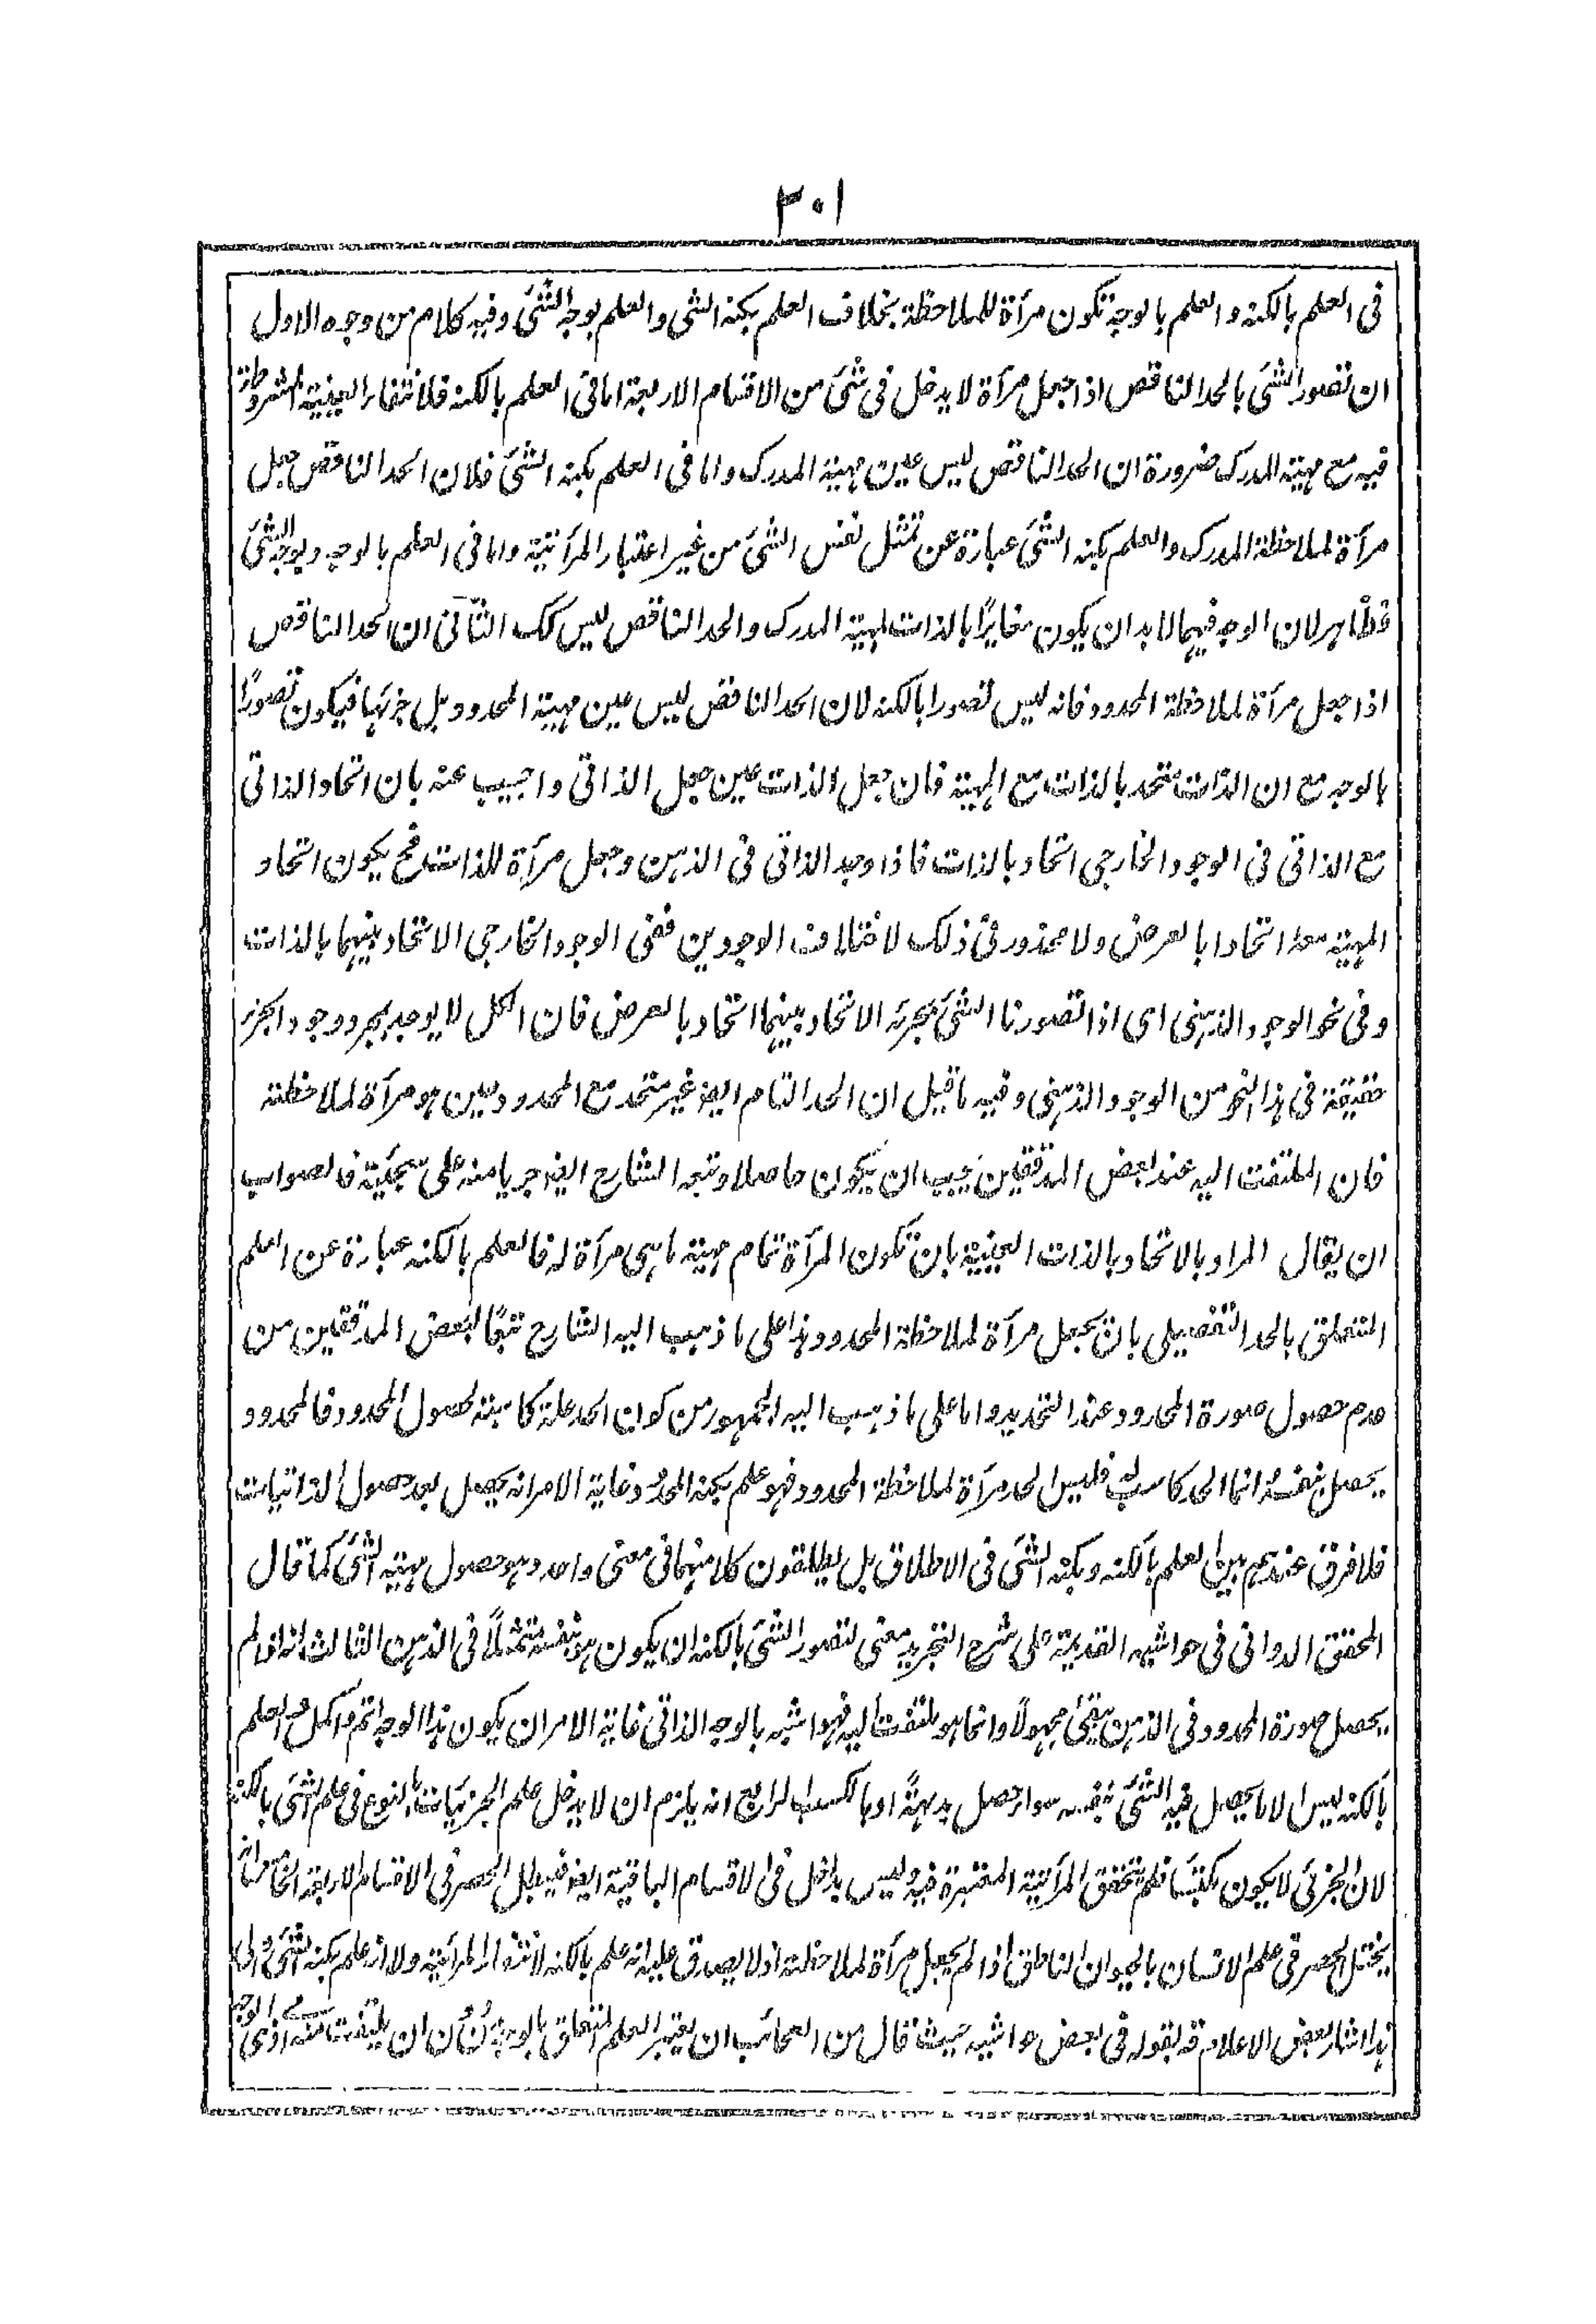 ٣٠١
فى العلم بالكنه والعلم بالوجه تكون مرآة للملاحظة بخلاف العلم بكنه الشى والعلم بوجه الشئ وفيه كلام من وجوه الاول
ان تصور الشئ بالحد الناقص اذا جعل مرآة لا يدخل فى شئ من الاقسام الاربعة اما فى العلم بالكنه فلانتفاء العينية المشروطة
فيه مع مهية المدرك ضرورة ان الحد الناقص ليس عين مهية المدرك واما فى العلم بكنه الشئ فلان الحد الناقص جعل
مرآة لملاحظة المدرك والعلم بكنه الشئ عبارة عن تمثل نفس الشئ من غير اعتبار المرآتية واما فى العلم بالوجه وبوجه الشئ
فظاهر لان الوجه فيهما لا بد ان يكون مغايرًا بالذات لمهية المدرك والحد الناقص ليس كك الثانى ان الحد الناقص
اذا جعل مرآة لملاحظة المحدود فانه ليس تصورا بالكنه لان الحد الناقص ليس عين مهية المحدود بل جزئها فيكون تصورًا
بالوجه مع ان الذات متحد بالذات مع المهية فان جعل الذات عين جعل الذاتى واجيب عنه بان اتحاد الذاتى
مع الذاتى فى الوجود الخارجى اتحاد بالذات فاذا وجد الذاتى فى الذهن وجعل مرآة للذات فح يكون اتحاد
المهية معه اتحادا بالعرض ولا محذور فى ذلك لاختلاف الوجودين ففى الوجود الخارجى الاتحاد بينهما بالذات
وفى نحو الوجود الذهنى اى اذا تصورنا الشئ بجزئه الاتحاد بينهما اتحاد بالعرض فان الكل لا يوجد بمجرد وجود الجزء
حقيقة فى هذا النحو من الوجود الذهنى وفيه ما قيل ان الحد التام ايضا غير متحد مع المحدود حين هو مرآة لملاحظته
فان الملتفت اليه عند بعض المدققين يجب ان يكون حاصلا وتبعه الشارح ايضا جريا منه على سجيته فالصواب
ان يقال المراد بالاتحاد بالذات العينية بان تكون المرآة تمام مهية ما هى مرآة له فالعلم بالكنه عبارة عن العلم
المتعلق بالحد التفصيلى بان يجعل مرآة لملاحظة المحدود وهذا على ما ذهب اليه الشارح تبعًا لبعض المدققين من
عدم حصول صورة المحدود عند التحديد واما على ما ذهب اليه الجمهور من كون الحد علة كاسبة لحصول المحدود فالمحدود
يحصل بنفسه انما الحد كاسب له فليس الحد مرآة لملاحظة المحدود فهو علم بكنه المحدود غاية الامر انه يحصل بعد حصول الذاتيات
فلا فرق عندهم بين العلم بالكنه وبكنه الشئ فى الاطلاق بل يطلقون كلا منهما فى معنى واحد وهو حصول مهية الشئ كما قال
المحقق الدوانى فى حواشيه القديمة على شرح التجريد معنى تصور الشئ بالكنه ان يكون هو بنفسه متمثلًا فى الذهن الثالث انه اذا لم
يحصل صورة المحدود فى الذهن يبقى مجهولًا وانما هو ملتفت اليه فهو اشبه بالوجه الذاتى غاية الامر ان يكون هذا الوجه اتم واكمل والعلم
بالكنه ليس الا ما يحصل فيه الشئ بنفسه سواء حصل بديهةً او بالكسب الرابع انه يلزم ان لا يدخل علم الجزئيات بالنوع فى علم الشئ بالكنه
لان الجزئى لا يكون مكتسبًا فلم تتحقق المرآتية المعتبرة فيه وليس بداخل فى الاقسام الباقية ايضا فيبطل الحصر فى الاقسام الاربعة الخامس انه
يختل الحصر فى علم الانسان بالحيوان الناطق اذا لم يجعل مرآة لملاحظته اذ لا يصدق عليه انه علم بالكنه لانتفاء المرآتية ولا انه علم بكنه الشئ والى
هذا اشار بعض الاعلام قه بقوله فى بعض حواشيه حيث قال من العجائب ان يعتبر العلم المتعلق بالوجه ان يلتفت